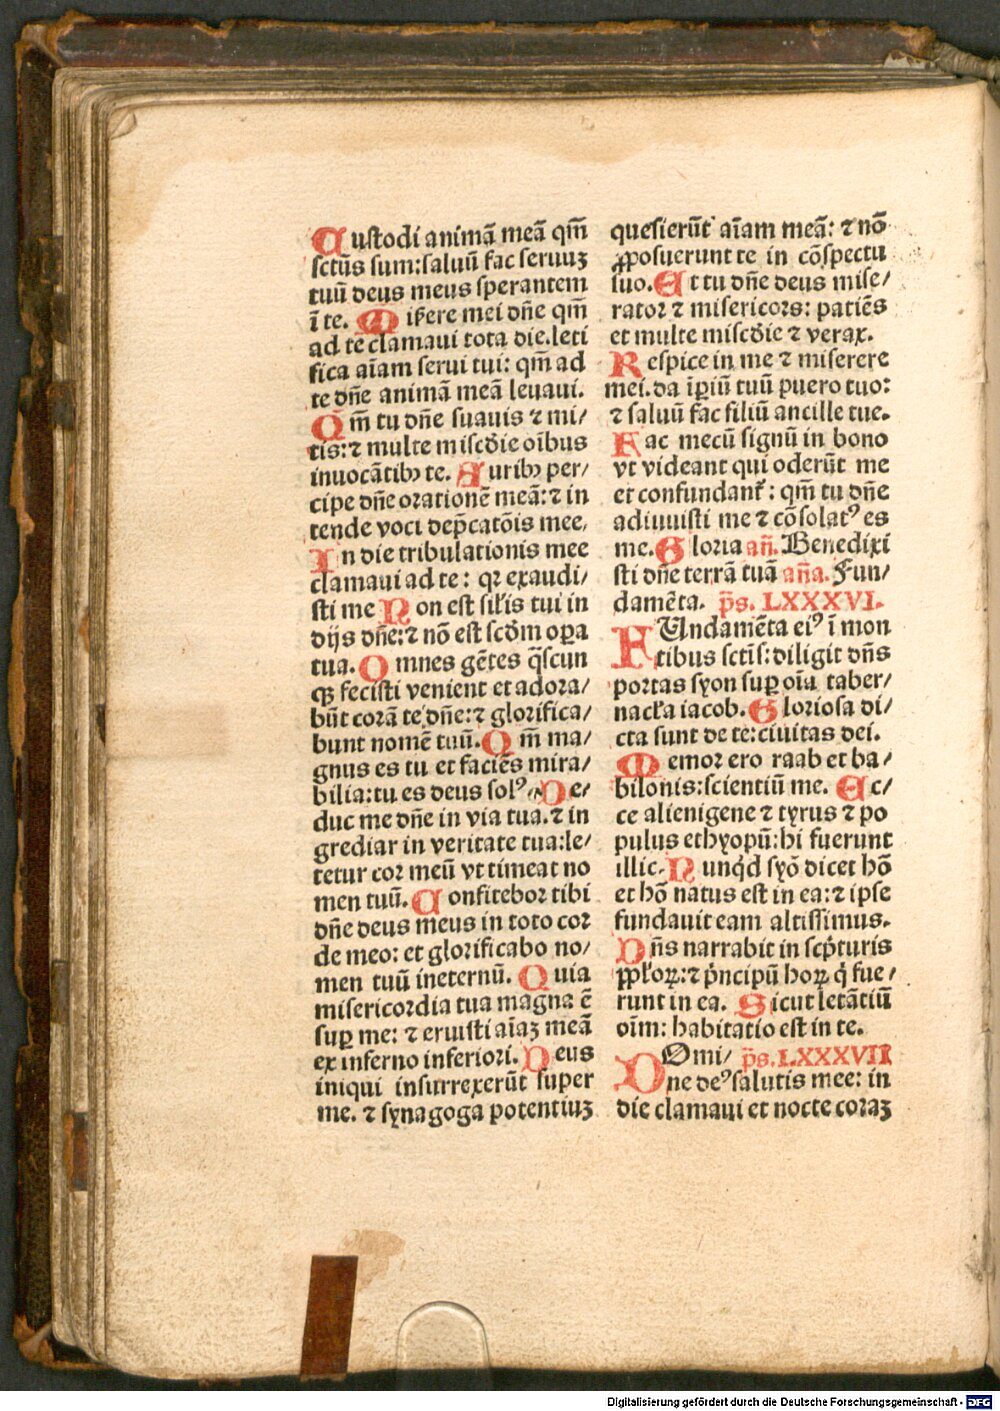 Custodi animā meā qm̄
sctūs sum: saluū fac seruuꝫ
tuū deus meus sperantem
ī te. Miẜere mei dn̄e qm̄
ad te clamaui tota die. leti
fica aīam serui tui: qm̄ ad
te dn̄e animā meā leuaui.
Qm̄ tu dn̄e suauis ⁊ mi/
tis: ⁊ multe misc̄die oībus
inuocātibꝫ te. Auribꝫ per/
cipe dn̄e orationē meā: ⁊ in
tende voci dep̄catōis mee,
In die tribulationis mee
clamaui ad te: qꝛ exaudi/
sti me Non est sil̄is tui in
dijs dn̄e: ⁊ nō est scd̄m oꝑa
tua. Omnes gētes q̄scun
qꝫ fecisti venient et adora/
būt corā te dn̄e: ⁊ glorifica/
bunt nomē tuū. Qm̄ ma/
gnus es tu et faciēs mira/
bilia: tu es deus solꝰ. De/
duc me dn̄e in via tua. ⁊ in
grediar in veritate tua: le/
tetur cor meū vt timeat no
men tuū. Confitebor tibi
dn̄e deus meus in toto cor
de meo: et glorificabo no/
men tuū ineternū. Quia
misericordia tua magna ē
suꝑ me: ⁊ eruisti aīaꝫ meā
ex inferno inferiori. Deus
iniqui insurrexerūt super
me. ⁊ synagoga potentiuꝫ
quesierūt aīam meā: ⁊ nō
ꝓposuerunt te in cōspectu
suo. Et tu dn̄e deus mise/
rator ⁊ misericors: patiēs
et multe misc̄die ⁊ verax.
Respice in me ⁊ miserere
mei. da īꝑiū tuū puero tuo:
⁊ saluū fac filiū ancille tue.
Fac mecū signū in bono
vt videant qui oderūt me
et confundant᷑: qm̄ tu dn̄e
adiuuisti me ⁊ cōsolatꝰ es
me. Gloria an̄. Benedixi
sti dn̄e terrā tuā an̄a. Fun/
damēta. ps̄. LXXXVI.
FUndamēta eiꝰ ī mon
tibus sctīs: diligit dn̄s
portas syon suꝑ oīa taber/
nacl̄a iacob. Gloriosa di/
cta sunt de te: ciuitas dei.
Memor ero raab et ba/
bilonis: scientiū me. Ec/
ce alienigene ⁊ tyrus ⁊ po
pulus ethyopū: hi fuerunt
illic. Nunqd̄ syō dicet hō
et hō natus est in ea: ⁊ ipse
fundauit eam altissimus.
Dn̄s narrabit in scp̄turis
ppl̄oꝝ: ⁊ p̄ncipū hoꝝ q̇ fue/
runt in ea. Sicut letātiū
oīm: habitatio est in te.
DOmi/ ps̄. LXXXVII
ne deꝰ salutis mee: in
die clamaui et nocte coraꝫ
Digitalisierung gefördert durch die Deutsche Forschungsgemeinschaft - DFG